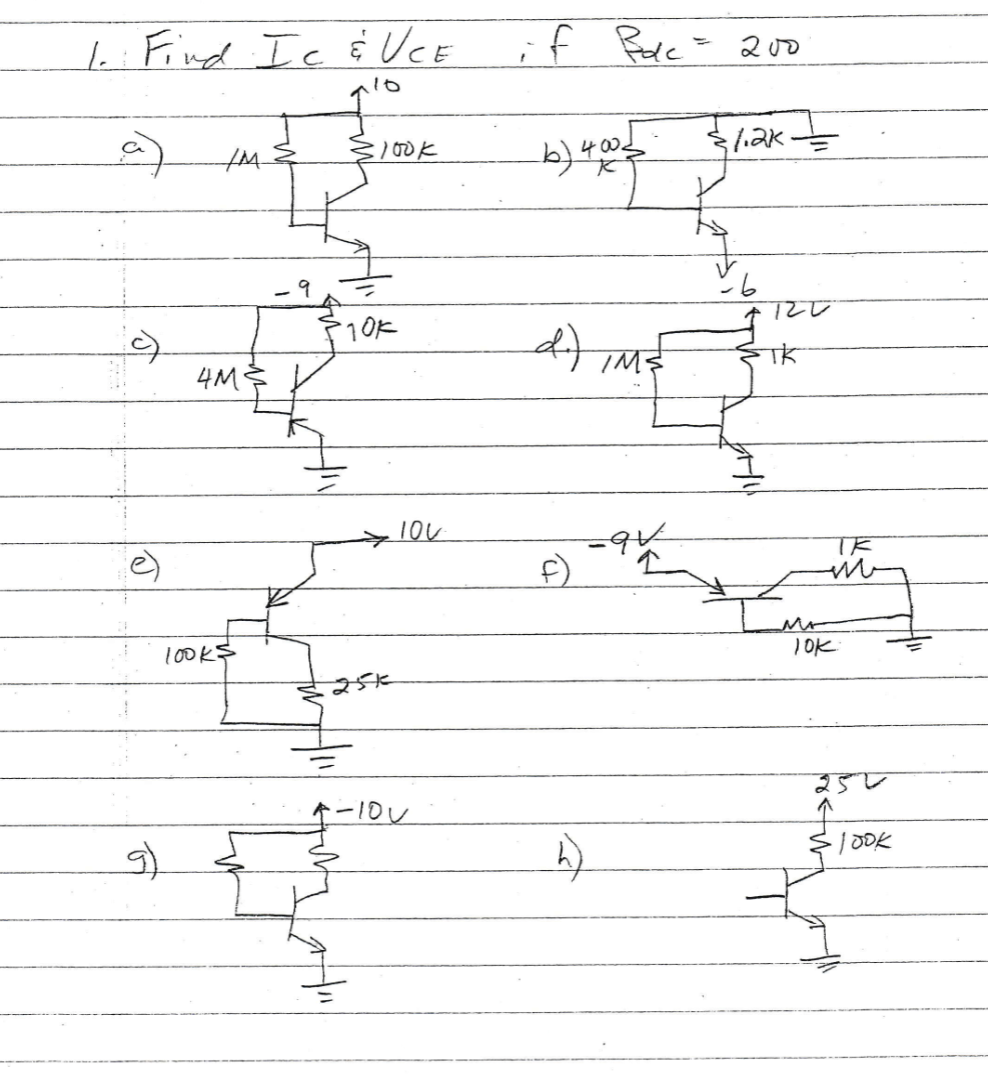 1. Find IC & VCE if βdc = 200
10
a) 1M 100K
b) 400 K 1.2K
-6
-9
c) 10K
4M
12V
d.) 1M 1K
10V
e)
100K
25K
-9V
f) 1K
10K
-10V
g)
25V
h) 100K